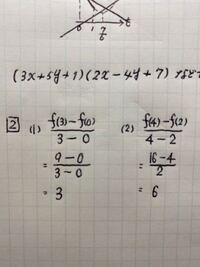 0 1 7/6 t
(3x+5y+1)(2x-4y+7)
2 (1) (f(3)-f(0))/(3-0) (2) (f(4)-f(2))/(4-2)
= (9-0)/(3-0) = (16-4)/2
= 3 = 6